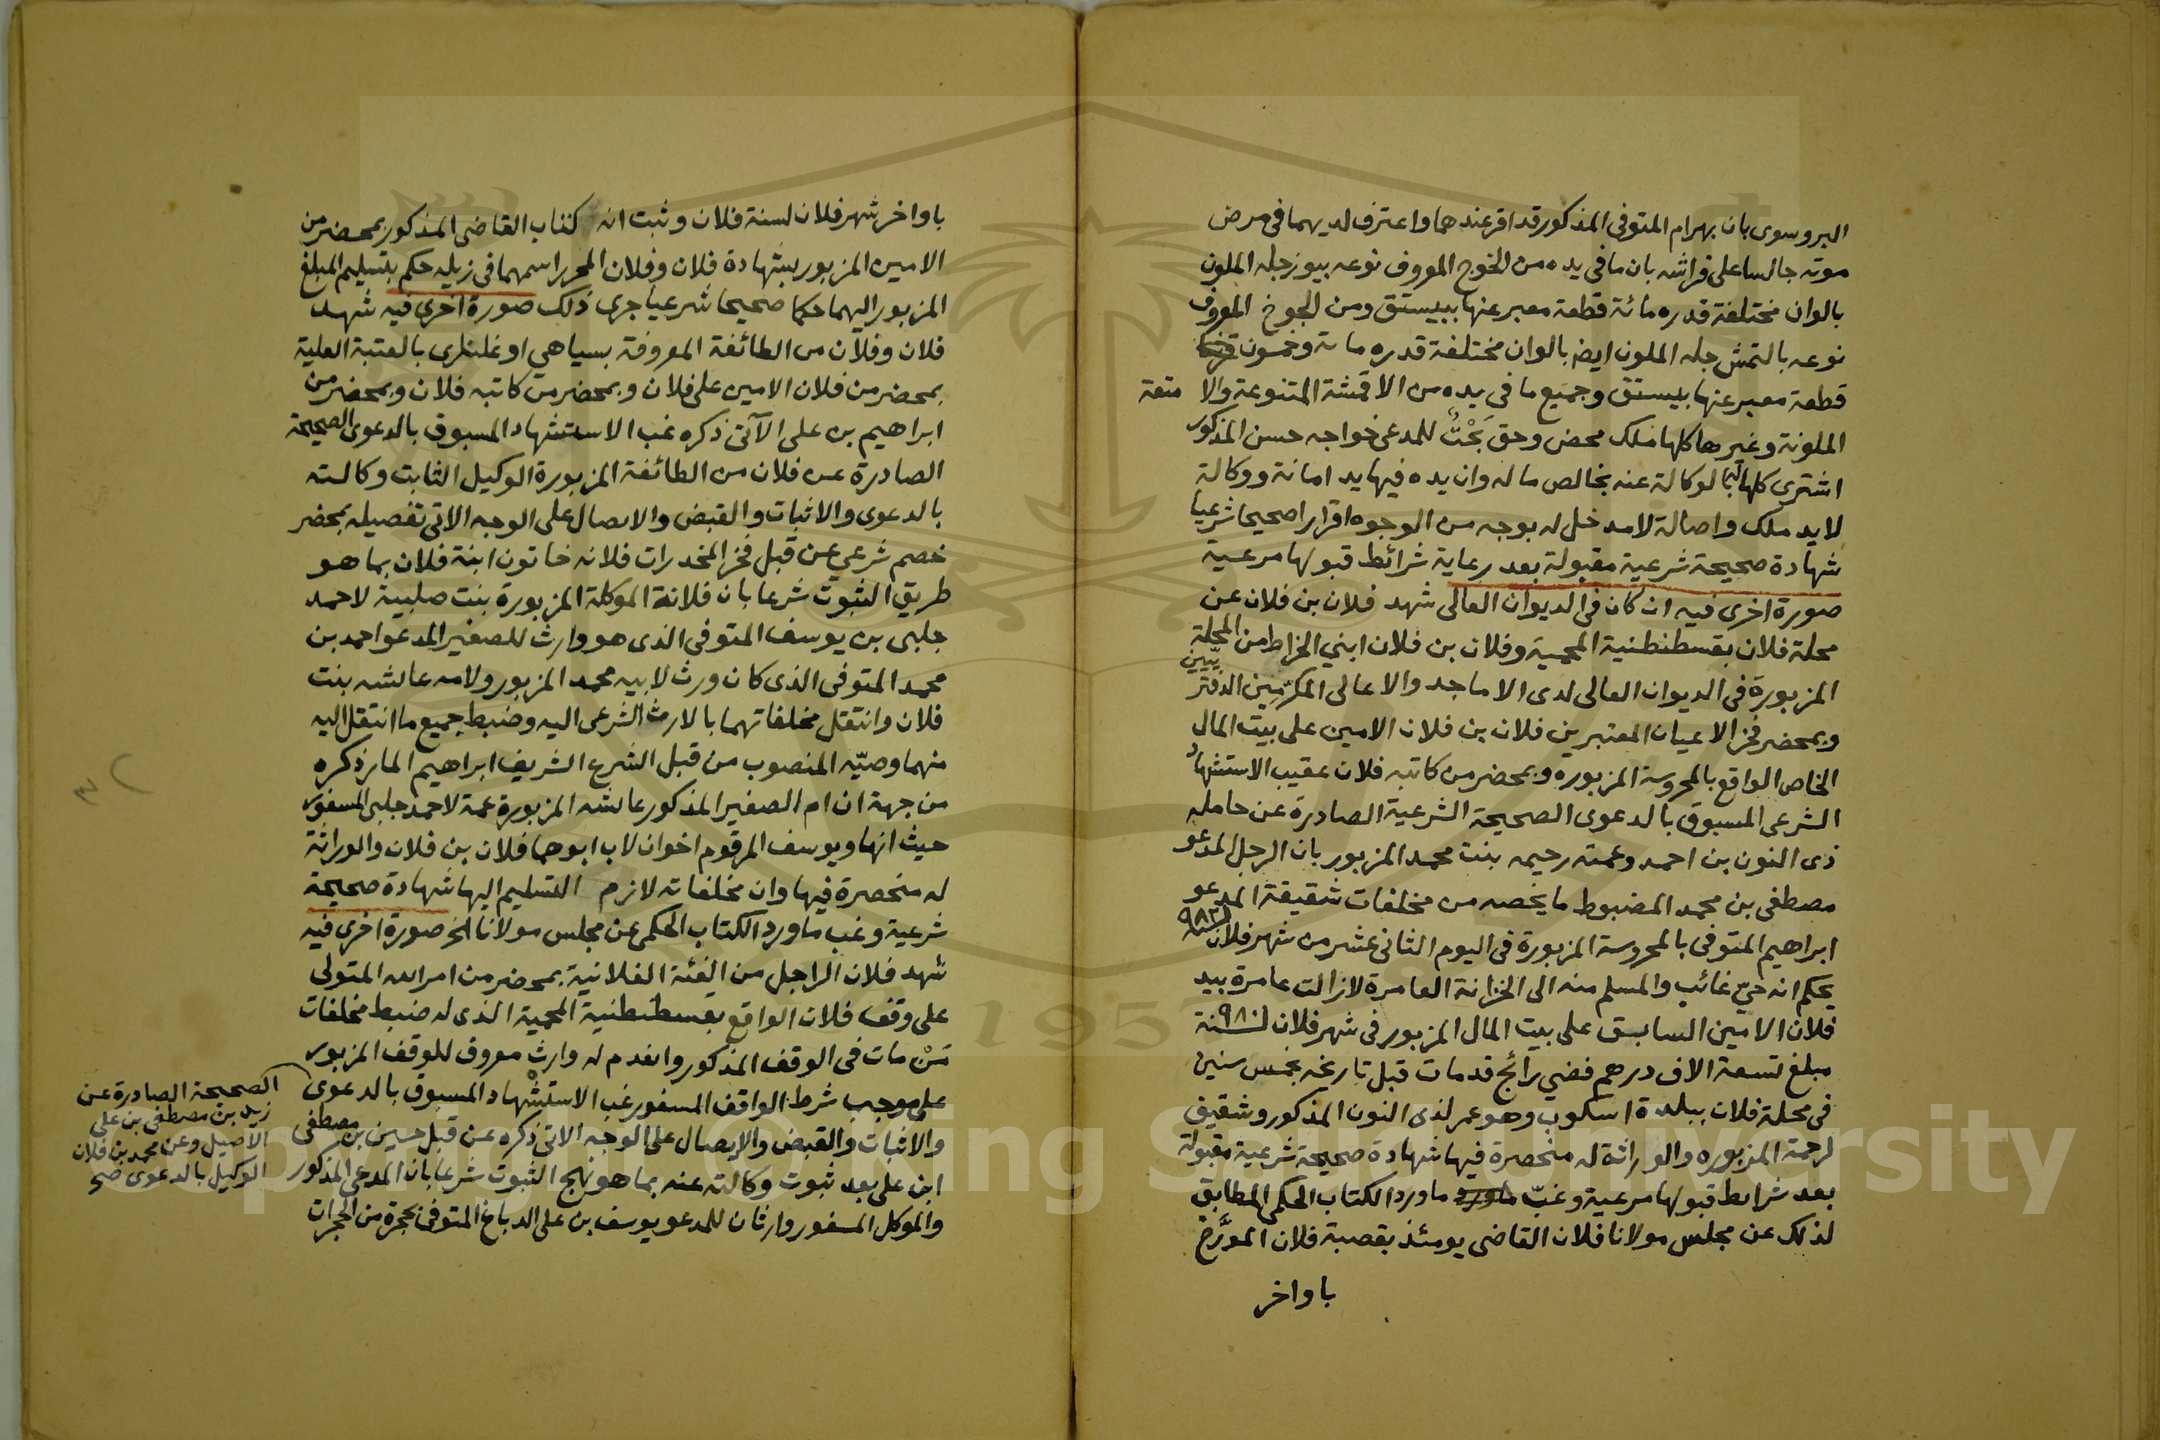 البروسوى بان بهرام المتوفى المذكور قد اقر عندهما واعترف لديهما فى مرض
موته جالسا على فراشه بان ما فى يده من الخوج المعروف نوعه بيوزجله الملون
بالوان مختلفة قدره مائة قطعة معبر عنها ببيستق ومن الجوخ المعروف
نوعه بالتمش جله الملون ايض بالوان مختلفة قدره مائة وخمسون
قطعة معبر عنها ببيستق وجميع ما فى يده من الاقمشة المتنوعة والا متعة
الملونة وغيرها كلها ملك محض وحق بَحْتٌ للمدعى خواجه حسن المذكور
اشترى كلها بالوكالة عنه بخالص ماله وان يده فيها يد امانة ووكالة
لا يد ملك واصالة لا مدخل له بوجه من الوجوه اقرارا صحيحا شرعيا
شهادة صحيحة شرعية مقبولة بعد رعاية شرائط قبولها مرعية
صورة اخرى فيه ان كان فى الديوان العالى شهد فلان بن فلان عن
محلة فلان بقسطنطنية المحمية وفلان بن فلان ابنى الخراط من المحلة
المزبورة فى الديوان العالى لدى الاماجد والاعالى المكرمين الدفتريين
وبمحضر فخر الاعيان المعتبرين فلان بن فلان الامين على بيت المال
الخاص الواقع بالمحروسة المزبوره وبمحضر من كاتبه فلان عقيب الاستشهاد
الشرعى المسبوق بالدعوى الصحيحة الشرعية الصادرة عن حامله
ذى النون بن احمد وعمته رحيمه بنت محمد المزبور بان الرجل المدعو
مصطفى بن محمد المضبوط ما يخصه من مخلفات شقيقة المدعو
ابراهيم المتوفى بالمحروسة المزبورة فى اليوم الثانى عشر من شهر فلان لسنة ٩٨٣
يحكم انه حىّ غائب والمسلم منه الى الخزانة العامرة لازالت عامرة بيد
فلان الامين السابق على بيت المال المزبور فى شهر فلان لسنة ٩٨٠
مبلغ تسعة الاف درهم فضى رائج قد مات قبل تاريخه بخمس سنين
فى محلة فلان ببلدة اسكوب وهو عم لذى النون المذكور وشقيق
لرحمة المزبوره والوراثة له منحصرة فيها شهادة صحيحة شرعية مقبولة
بعد شرايط قبولها مرعية وغبّ ما ورد الكتاب الحكمى المطابق
لذلك عن مجلس مولانا فلان القاضى يومئذ بقصبة فلان المؤرَّخ
باواخر
باواخر شهر فلان لسنة فلان وثبت انه كتاب القاضى المذكور بمحضر من
الامين المزبور بشهادة فلان وفلان المحرر اسمهما فى زيله حكم بتسليم المبلغ
المزبور اليهما حكما صحيحا شرعيا جرى ذلك صورة اخرى فيه شهد
فلان وفلان من الطائفة المعروفة بسپاهى اوغلنلرى بالعتبة العلية
بمحضر من فلان الامين على فلان وبمحضر من كاتبه فلان وبمحضر من
ابراهيم بن على الآتى ذكره غب الاستشهاد المسبوق بالدعوى الصحيحة
الصادرة عن فلان من الطائفة المزبورة الوكيل الثابت وكالته
بالدعوى والاثبات والقبض والايصال على الوجه الاتى تفصيله بمحضر
خصم شرعي عن قبل فخر المخدرات فلانه خاتون ابنة فلان بما هو
طريق الثبوت شرعا بان فلانة الموكلة المزبورة بنت صلبية لاحمد
جلبى بن يوسف المتوفى الذى هو وارث للصغير المدعو احمد بن
محمد المتوفى الذى كان ورث لابيه محمد المزبور ولامه عائشه بنت
فلان وانتقل مخلفاتهما بالارث الشرعى اليه وضبط جميع ما انتقل اليه
منهما وصيّه المنصوب من قبل الشرع الشريف ابراهيم المار ذكره
من جهة ان ام الصغير المذكور عائشه المزبورة عمة لاحمد جلبى المسفور
حيث انها ويوسف المرقوم اخوان لاب ابوهما فلان بن فلان والوراثة
له منحصرة فيها وان مخلفاته لازم التسليم اليها شهادة صحيحة
شرعية وغب ما ورد الكتاب الحكمى عن مجلس مولانا الخ صورة اخرى فيه
شهد فلان الراجل من الفئة الفلانية بمحضر من امرالله المتولى
على وقف فلان الواقع بقسطنطنية المحمية الذى له ضبط مخلفات
مَنْ مات فى الوقف المذكور وانعدم له وارث معروف للوقف المزبور
على موجب شرط الواقف المسفور غب الاستشهاد المسبوق بالدعوى
الصحيحة الصادرة عن
زيد بن مصطفى بن على
الاصيل وعن محمد بن فلان
الوكيل بالدعوى صح
والاثبات والقبض والايصال على الوجه الاتى ذكره عن قبل حسين بن مصطفى
ابن على بعد ثبوت وكالته عنه بما هو نهج الثبوت شرعا بان المدعى المذكور
والموكل المسفور وارثان للمدعو يوسف بن على الدباغ المتوفى بحجرة من الحجرات
Copyright © King Saud University
1957